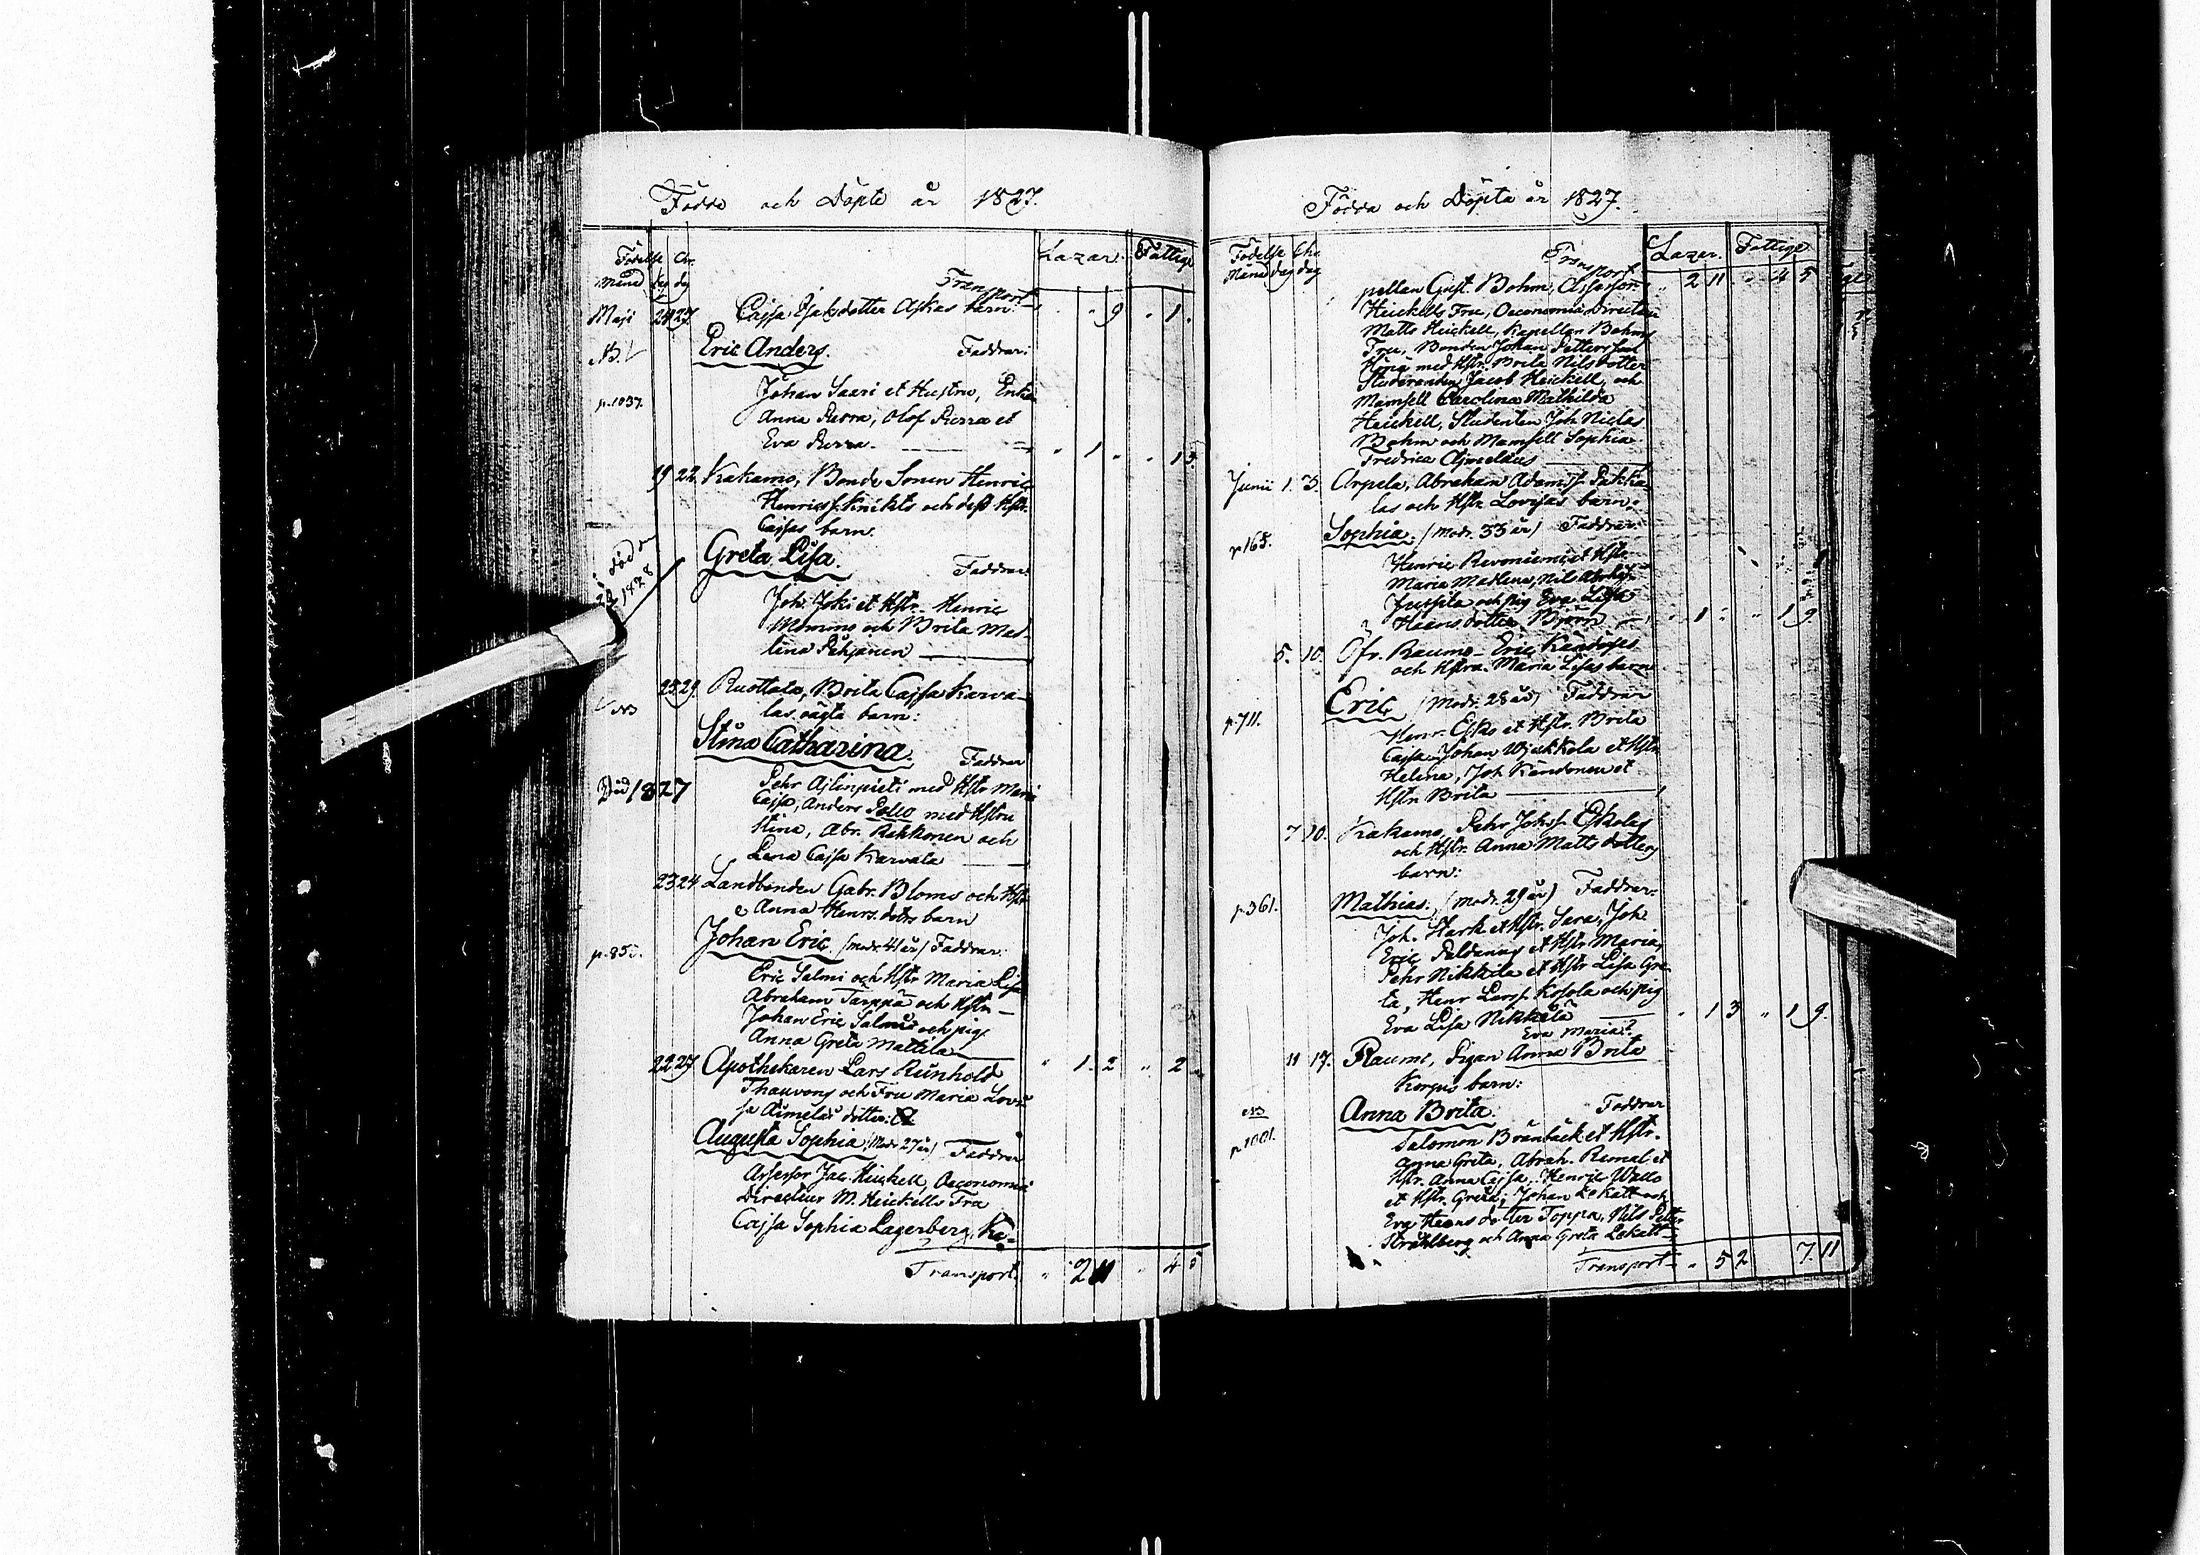 Födde och Döpte år 1827.
Födelse Chr. Lazar. Fattige
Månad dag dg Transport
Maji 24 27 Cajsa Isaksdotter Askas barn — " " 9 " 1 "
NB. Eric Anders. Faddrar:
p. 1037. Johan Saari et Hustru, Enka
Anna Perra, Olof Perra et
Eva Perra. — " 1 " " 1 3.
19 22. Kakamo, Bonde Sonen Henric
Henricss. Knikts och dess Hstr.
Cajsas barn.
död
1828
Greta Lisa. Faddrar:
Joh. Joki et Hstr. Henric
Mommo och Brita Mad-
lena Pehjonen —
25 29. Ruottala, Brita Cajsa Karva-
NB las oägta barn:
Stina Catharina. Faddrar
Död 1827 Pehr Ajlinpieti med Hstr Maria
Cajsa, Anders Pello med Hstru
Stina, Abr. Rekkonen och
Lena Cajsa Karvala —
23 24 Landbonden Gabr. Bloms och Hstr
Anna Henrs. dotrs barn
p. 855. Johan Eric. (Modr. 41 år) Faddrar:
Eric Salmi och Hstr Maria Lisa
Abraham Tarppa och Hstr —
Johan Eric Salmi och pig.
Anna Greta Mattila —
22 27 Apothekaren Lars Reinhold " 1. 2 " 2 "
Thauvons och Fru Maria Lovi-
sa Aimelæi dotter:
Augusta Sophia (Modr 27 år) Faddrar
Assessor Jac. Heickell, Oeconomie
Directeur M. Heickells Fru
Cajsa Sophia Lagerberg, Ka-
Transport. " 2 11 " 4 5
Födda och Döpta år 1827.
Födelse Chr. Lazar. Fattige
Månad dag dag Transport
pellan Gust. Bohm, Assessor " 2 11 " 4 5
Heickells Fru, Oeconomie Directeur
Matts Heickell, Kapellan Bohms
Fru, Bonden Johan Petterss
med Hstr. Brita Nilsdotter
Studeranden Jacob Heickell, och
Mamsell Carolina Mathilda
Heickell, Studenten Joh Niclas
Bohm och Mamsell Sophia
Fredrica Ajmelæus —
Junii 1. 3. Arpela, Abraham Adamss. Pekka-
las och Hstr Lovisas barn:
p 165. Sophia. (Modr. 33 år) Faddrar:
Henric Revoniemi et Hstr
Maria Madlena, Nils Abrahss.
Jussila och pig Eva Lisa
Hansdotter Björn — " 1 " " 1 9.
5. 10. Öfr. Raumo Eric
och Hstrn. Maria Lisas barn
p. 711. Eric (Modr. 28 år) Faddrar
Henr. Esko et Hstr. Brita
Cajsa, Johan Wjekkela et Hstr.
Helena, Joh Kandonen et
Hstr Brita —
7 10. Kakamo, Pehr Johss. Eskolas
och Hstr. Anna Matts dotters
barn:
p. 361. Mathias. (Modr. 29 år) Faddrar:
Joh. Hark et Hstr. Sara, Joh.
Eric Paldanus et Hstr Maria,
Pehr Nikkila et Hstr Lisa Gre-
ta, Henr Larss. Kosola och pig
Eva Lisa Nikkila — " 1 3 " 1 9.
Eva Maria?
11 17. Raumo, Pigan Anna Brita
Korpis barn:
NB Anna Brita. Faddrar
p. 1001. Salomon Brännback et Hstr.
Anna Greta, Abrah. Rumal et
Hstr. Anna Cajsa, Henric Wallo
et Hstr. Greta, Johan Lokatt och
Eva Hans dotter Toppa, Nils Petter
Stråhlberg och Anna Greta Lokatt —
Transport — " 5 2 7. 11